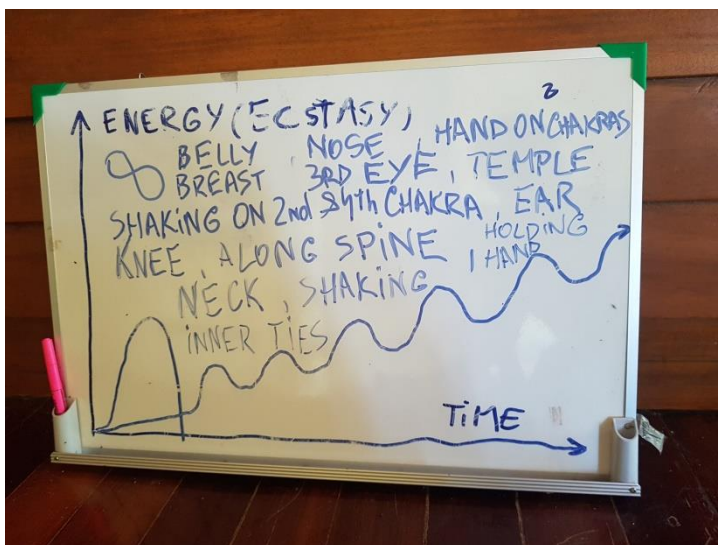 ENERGY (ECSTASY)
BELLY NOSE, HAND ON CHAKRAS
BREAST 3RD EYE, TEMPLE
SHAKING ON 2nd & 4th CHAKRA, EAR
KNEE, ALONG SPINE, HOLDING 1 HAND
NECK, SHAKING
INNER TIES
TIME